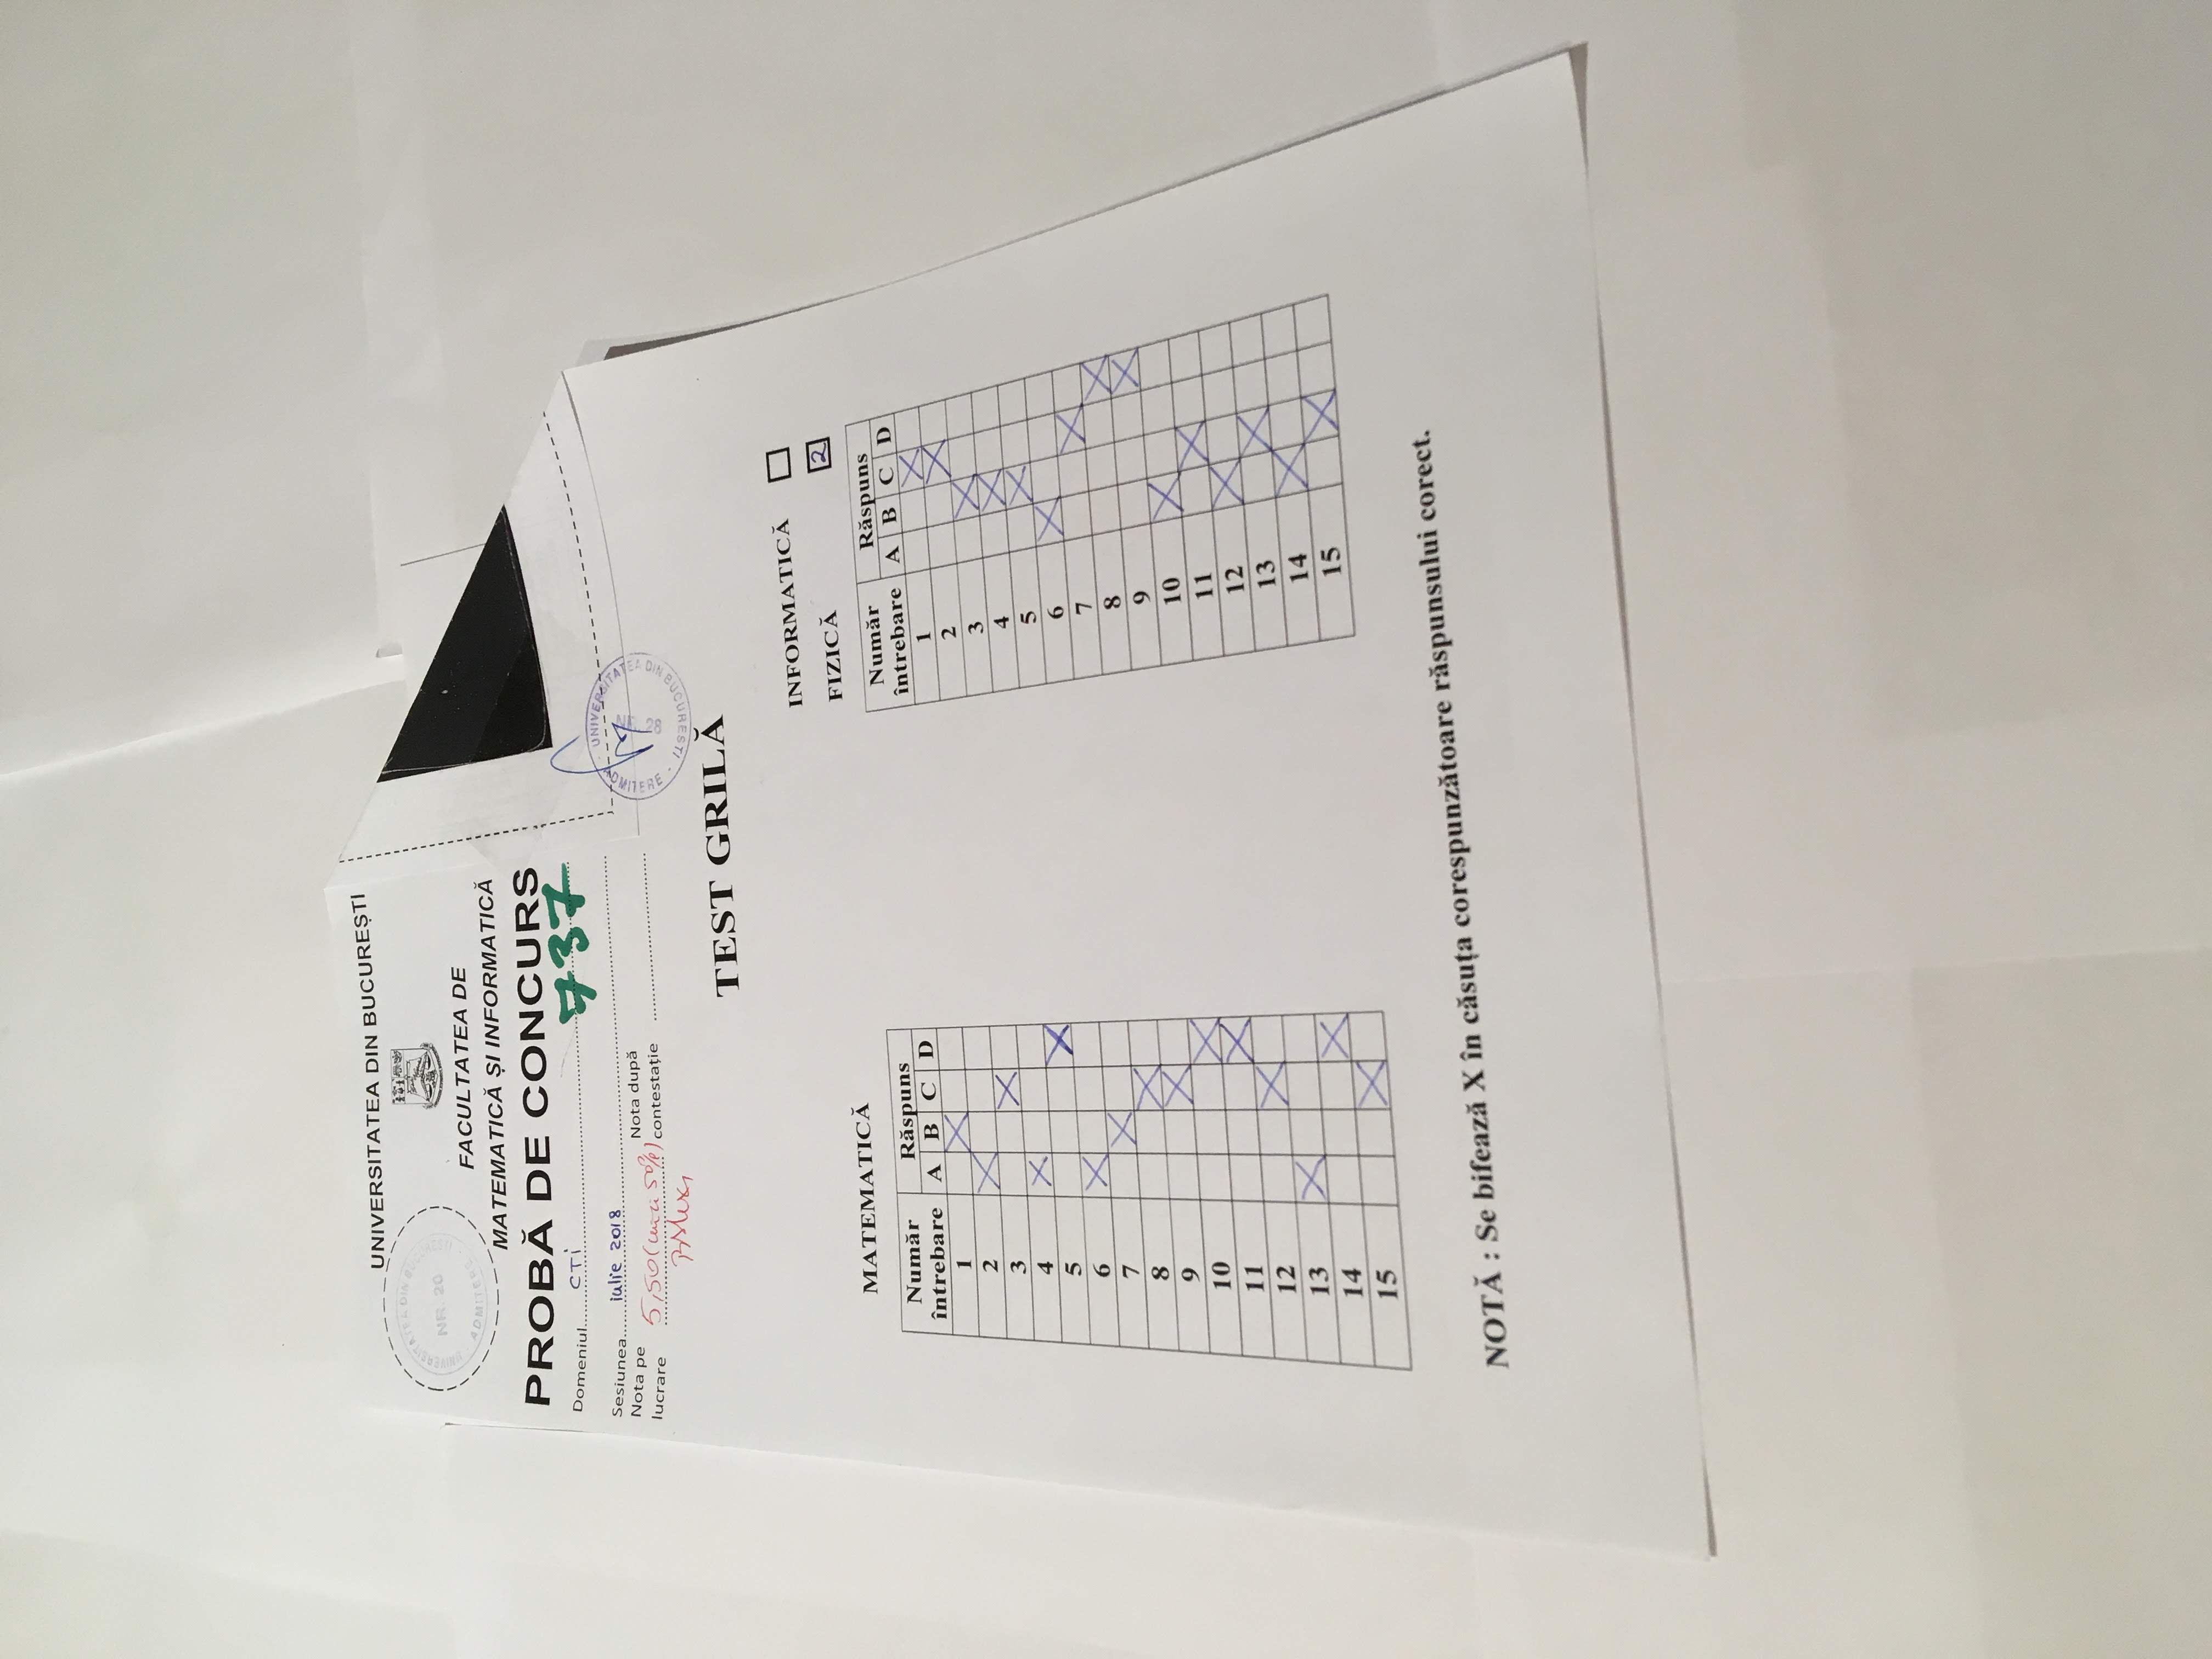 UNIVERSITATEA DIN BUCUREȘTI
UNIVERSITATEA DIN BUCUREȘTI
NR. 20
ADMITERE
FACULTATEA DE
MATEMATICĂ ȘI INFORMATICĂ
PROBĂ DE CONCURS
737
Domeniul CTi
Sesiunea iulie 2018
Nota pe lucrare 5,50 (cinci 50%)
Nota după contestație
UNIVERSITATEA DIN BUCURESTI
ADMITERE
28
TEST GRILĂ
INFORMATICĂ
FIZICĂ 2
MATEMATICĂ
Număr întrebare Răspuns
A B C D
1 X
2 X
3 X
4 X
5 X
6 X
7 X
8 X
9 X
10 X
11 X
12 X
13 X
14 X
15 X
Număr întrebare Răspuns
A B C D
1 X
2 X
3 X
4 X
5 X
6 X
7 X
8 X
9 X
10 X
11 X
12 X
13 X
14 X
15 X
NOTĂ : Se bifează X în căsuța corespunzătoare răspunsului corect.